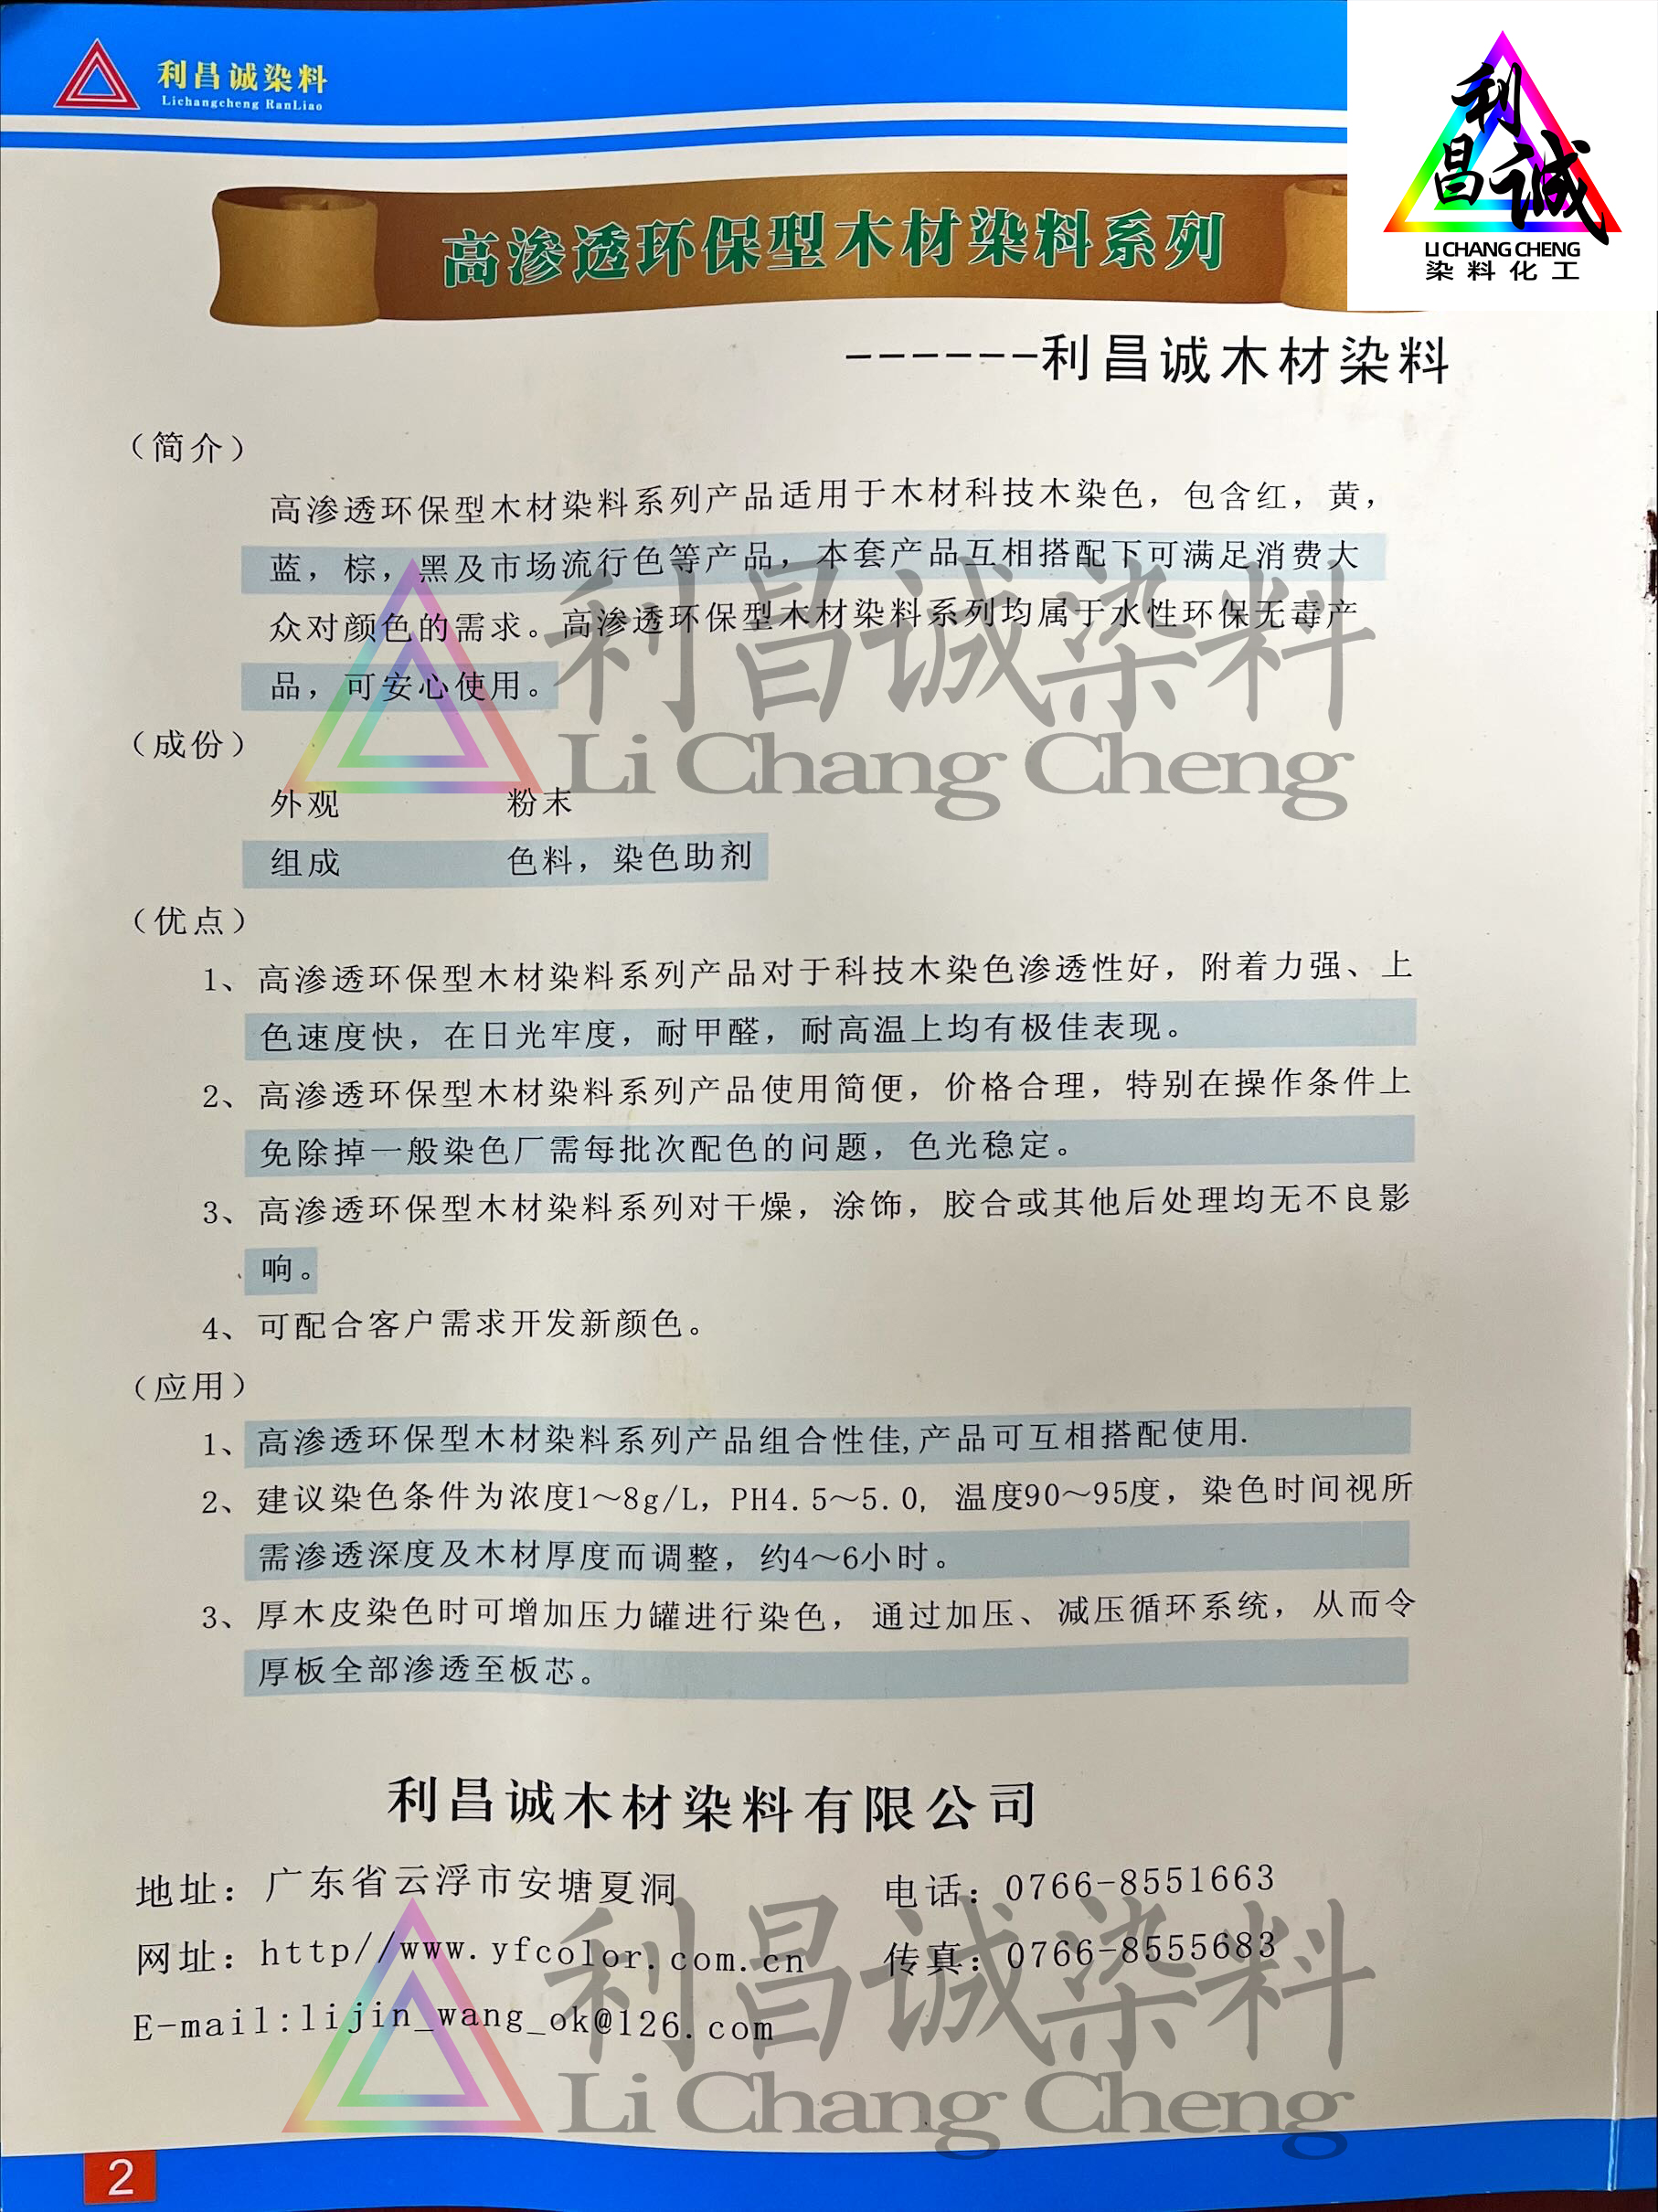 利昌诚染料
Lichangcheng RanLiao
利
昌诚
LI CHANG CHENG
染料化工
高渗透环保型木材染料系列
------利昌诚木材染料
（简介）
高渗透环保型木材染料系列产品适用于木材科技木染色，包含红，黄，
蓝，棕，黑及市场流行色等产品，本套产品互相搭配下可满足消费大
众对颜色的需求。高渗透环保型木材染料系列均属于水性环保无毒产
品，可安心使用。
利昌诚染料
Li Chang Cheng
（成份）
外观 粉末
组成 色料，染色助剂
（优点）
1、高渗透环保型木材染料系列产品对于科技木染色渗透性好，附着力强、上
色速度快，在日光牢度，耐甲醛，耐高温上均有极佳表现。
2、高渗透环保型木材染料系列产品使用简便，价格合理，特别在操作条件上
免除掉一般染色厂需每批次配色的问题，色光稳定。
3、高渗透环保型木材染料系列对干燥，涂饰，胶合或其他后处理均无不良影
响。
4、可配合客户需求开发新颜色。
（应用）
1、高渗透环保型木材染料系列产品组合性佳,产品可互相搭配使用.
2、建议染色条件为浓度1～8g/L，PH4.5～5.0，温度90～95度，染色时间视所
需渗透深度及木材厚度而调整，约4～6小时。
3、厚木皮染色时可增加压力罐进行染色，通过加压、减压循环系统，从而令
厚板全部渗透至板芯。
利昌诚木材染料有限公司
地址：广东省云浮市安塘夏洞 电话：0766-8551663
网址：http//www.yfcolor.com.cn 传真：0766-8555683
E-mail:lijin_wang_ok@126.com
利昌诚染料
Li Chang Cheng
2